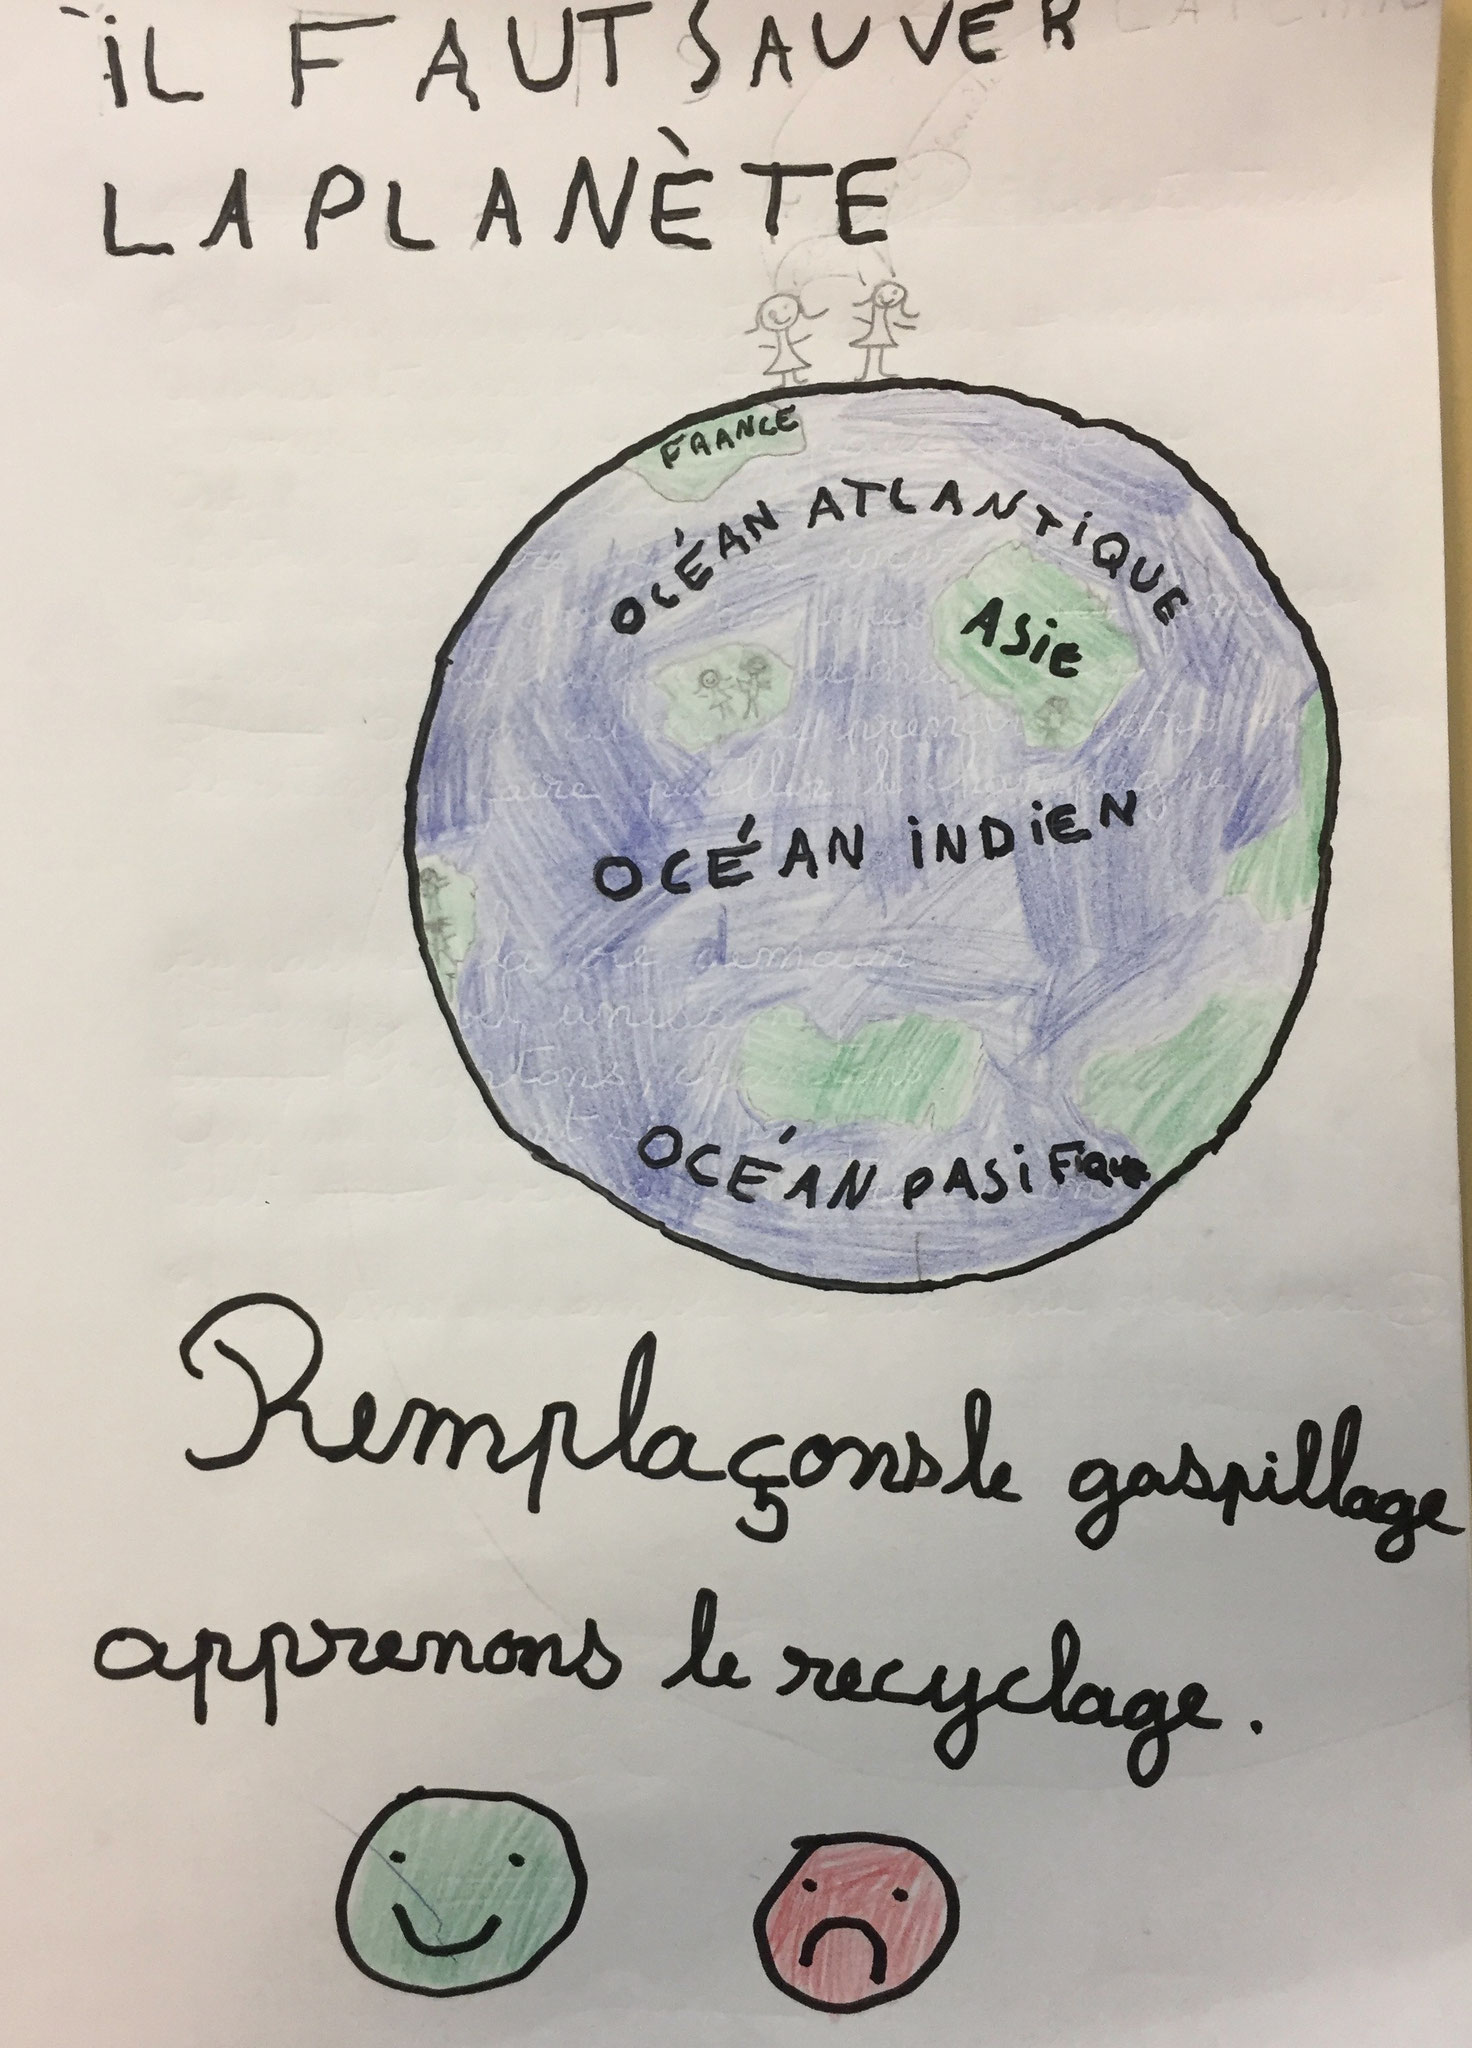 iL FAUT SAUVER
LA PLANÈTE
FRANCE
OCÉAN ATLANTiQUE
ASiE
OCÉAN iNDiEN
OCÉAN PASiFiQUE
Remplaçons le gaspillage
apprenons le recyclage.